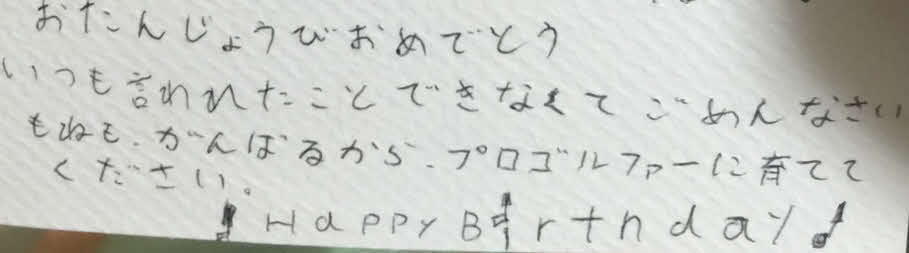 おたんじょうびおめでとう
いつも言われたことできなくてごめんなさい
もねも、がんばるから、プロゴルファーに育てて
ください。
Happy Birthday